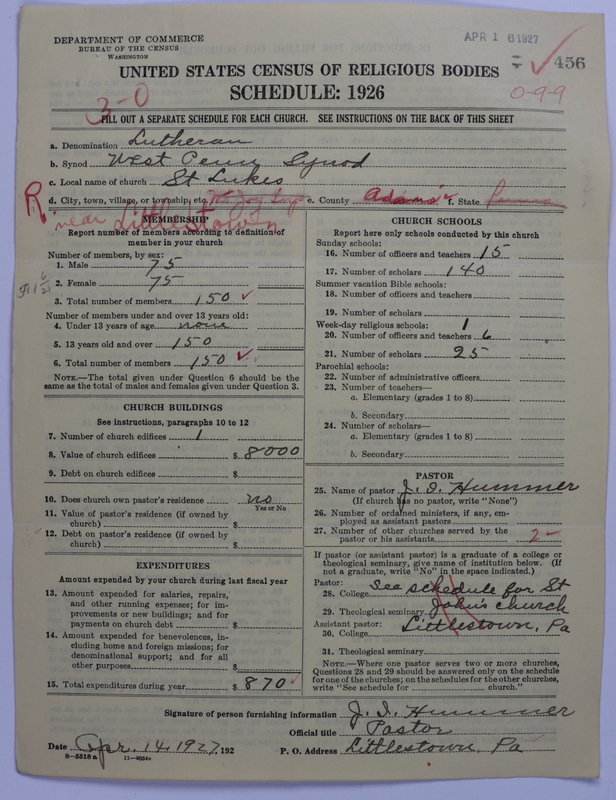 DEPARTMENT OF COMMERCE
BUREAU OF THE CENSUS
WASHINGTON
APR 16 1927
456
UNITED STATES CENSUS OF RELIGIOUS BODIES
SCHEDULE: 1926
0-9-9
3-0
FILL OUT A SEPARATE SCHEDULE FOR EACH CHURCH. SEE INSTRUCTIONS ON THE BACK OF THIS SHEET
a. Denomination Lutheran
b. Synod West Penn Synod
c. Local name of church St Lukes
R d. City, town, village, or township, etc. e. County Adams f. State
near Littlestown
MEMBERSHIP
Report number of members according to definition of
member in your church
Number of members, by sex:
1. Male 75
2. Female 75
3. Total number of members 150
Number of members under and over 13 years old:
4. Under 13 years of age none
5. 13 years old and over 150
6. Total number of members 150
NOTE.—The total given under Question 6 should be the
same as the total of males and females given under Question 3.
CHURCH BUILDINGS
See instructions, paragraphs 10 to 12
7. Number of church edifices 1
8. Value of church edifices $ 8000
9. Debt on church edifices $
10. Does church own pastor's residence no
Yes or No
11. Value of pastor's residence (if owned by
church) $
12. Debt on pastor's residence (if owned by
church) $
EXPENDITURES
Amount expended by your church during last fiscal year
13. Amount expended for salaries, repairs,
and other running expenses; for im-
provements or new buildings; and for
payments on church debt $
14. Amount expended for benevolences, in-
cluding home and foreign missions; for
denominational support; and for all
other purposes $
15. Total expenditures during year $ 870
CHURCH SCHOOLS
Report here only schools conducted by this church
Sunday schools:
16. Number of officers and teachers 15
17. Number of scholars 140
Summer vacation Bible schools:
18. Number of officers and teachers
19. Number of scholars
Week-day religious schools: 1
20. Number of officers and teachers 6
21. Number of scholars 25
Parochial schools:
22. Number of administrative officers
23. Number of teachers—
a. Elementary (grades 1 to 8)
b. Secondary
24. Number of scholars—
a. Elementary (grades 1 to 8)
b. Secondary
PASTOR
25. Name of pastor J. I. Hummer
(If church has no pastor, write "None")
26. Number of ordained ministers, if any, em-
ployed as assistant pastors
27. Number of other churches served by the
pastor or his assistants 2
If pastor (or assistant pastor) is a graduate of a college or
theological seminary, give name of institution below. (If
not a graduate, write "No" in the space indicated.)
Pastor:
28. College See schedule for St
29. Theological seminary John's church
Assistant pastor: Littlestown, Pa
30. College
31. Theological seminary
NOTE.—Where one pastor serves two or more churches,
Questions 28 and 29 should be answered only on the schedule
for one of the churches; on the schedules for the other churches,
write "See schedule for church."
Signature of person furnishing information J. I. Hummer
Official title Pastor
Date Apr. 14, 1927, 192 P. O. Address Littlestown, Pa
8-5518 a